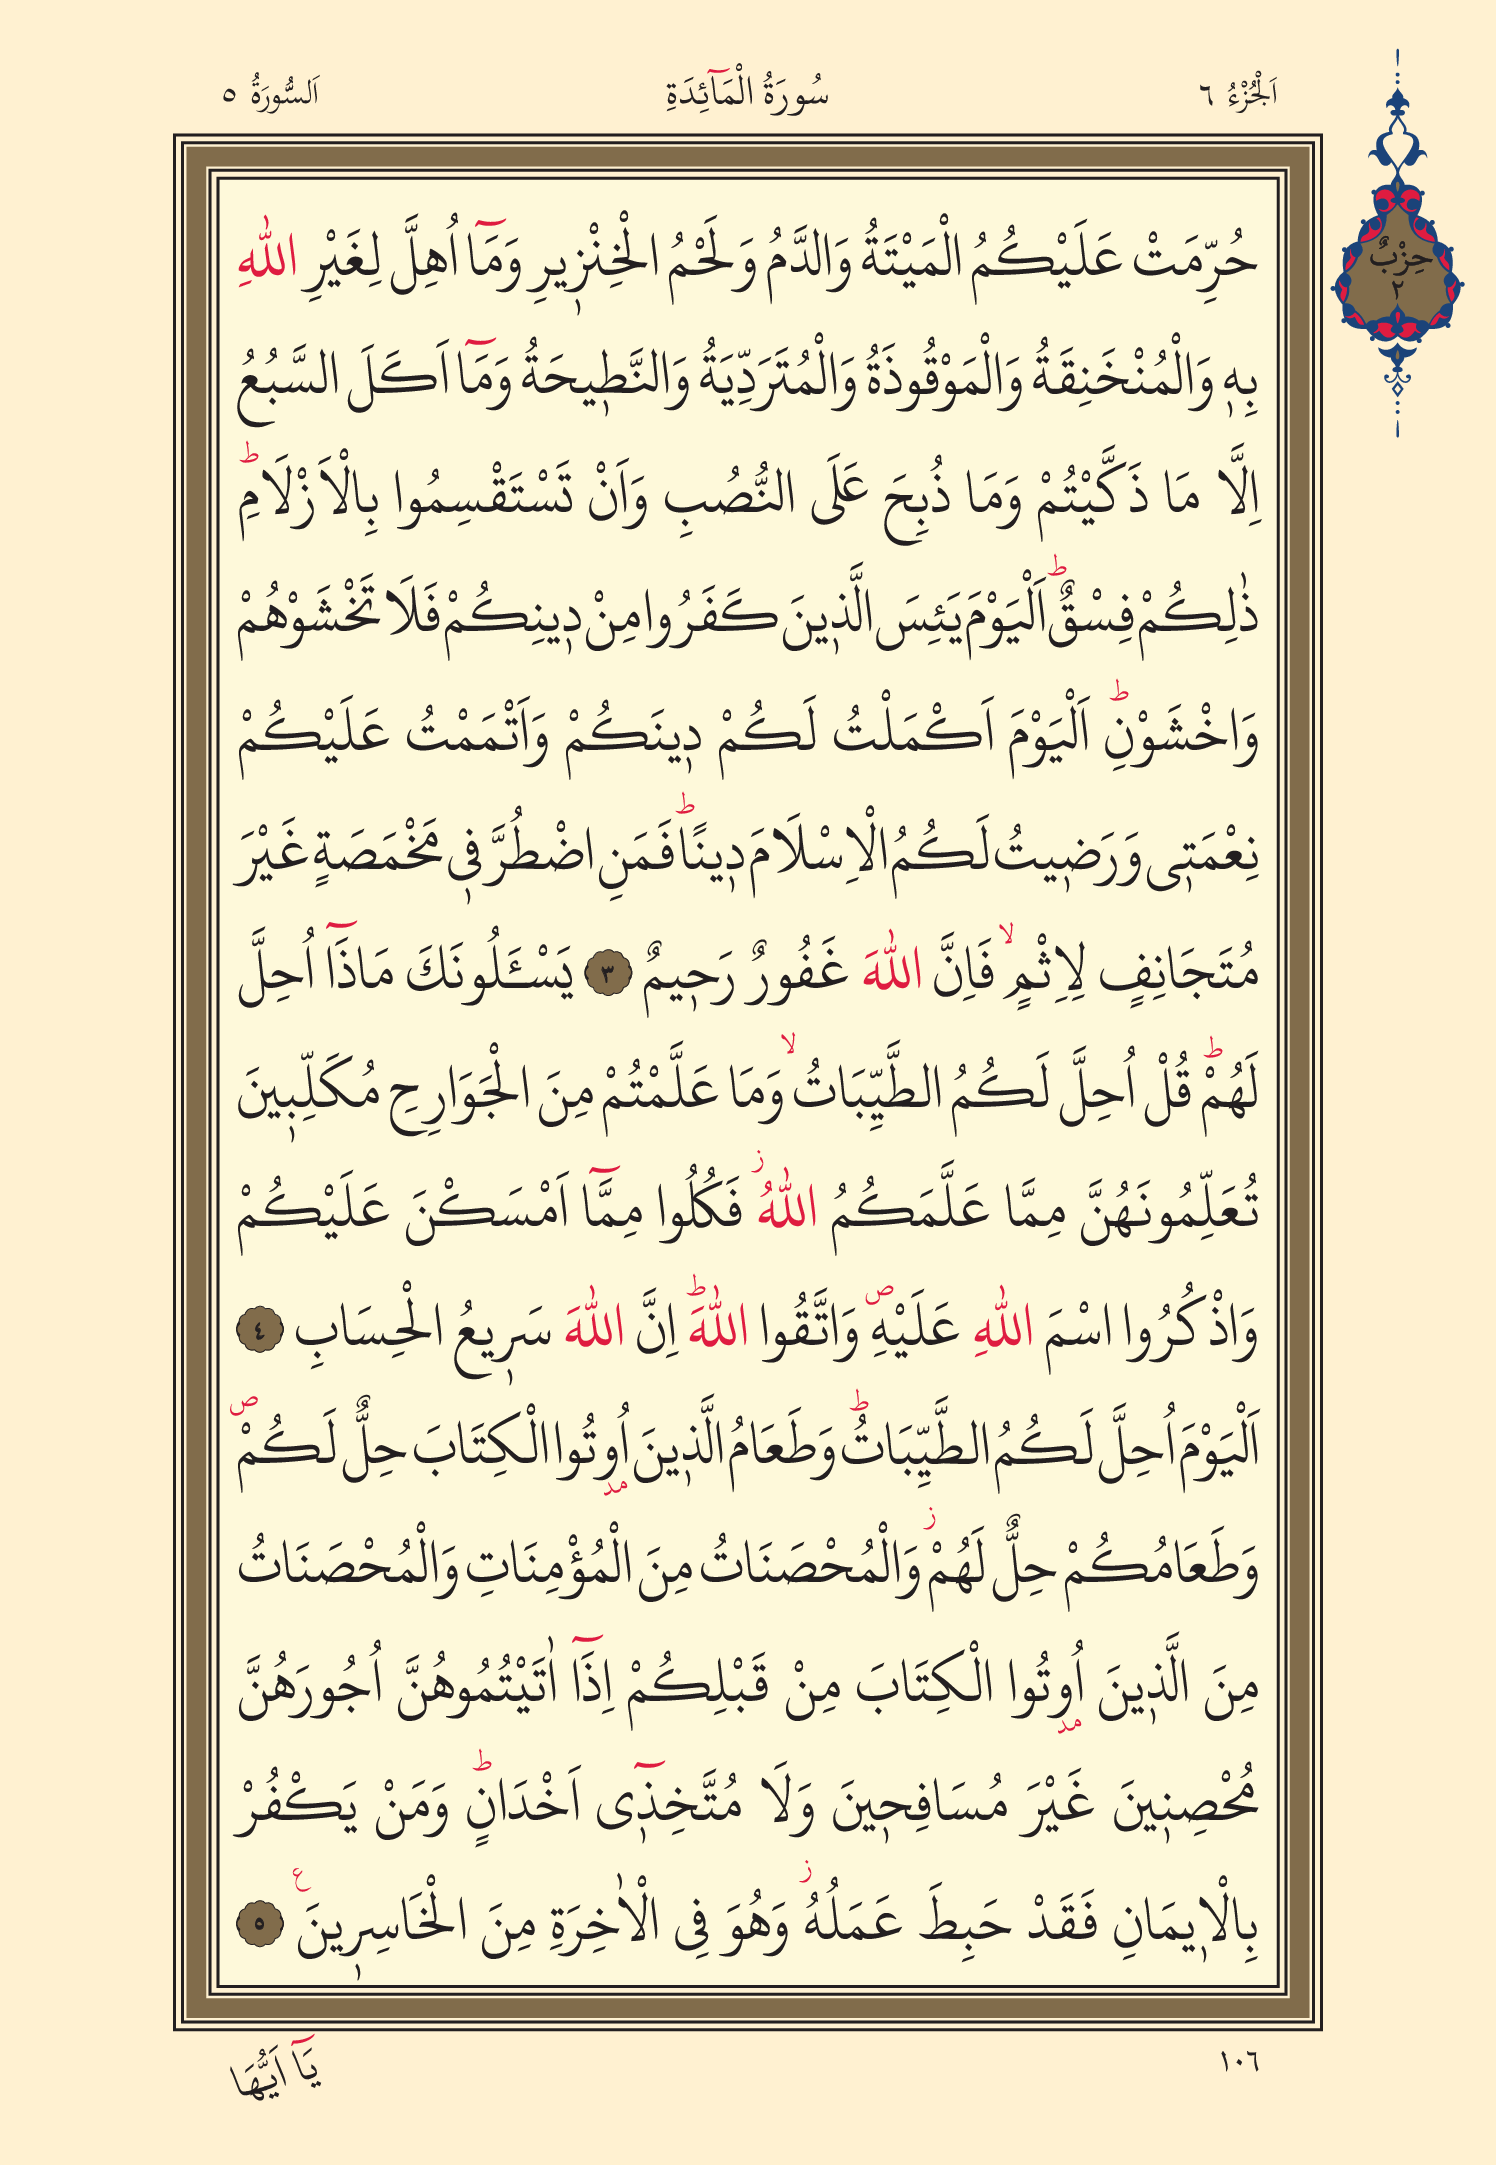 اَلْجُزْءُ ٦
سُورَةُ الْمَٓائِدَةِ
اَلسُّورَةُ ٥
حِزْبٌ
٢
حُرِّمَتْ عَلَيْكُمُ الْمَيْتَةُ وَالدَّمُ وَلَحْمُ الْخِنْز۪يرِ وَمَٓا اُهِلَّ لِغَيْرِ اللّٰهِ
بِه۪ وَالْمُنْخَنِقَةُ وَالْمَوْقُوذَةُ وَالْمُتَرَدِّيَةُ وَالنَّط۪يحَةُ وَمَٓا اَكَلَ السَّبُعُ
اِلَّا مَا ذَكَّيْتُمْ وَمَا ذُبِحَ عَلَى النُّصُبِ وَاَنْ تَسْتَقْسِمُوا بِالْاَزْلَامِۜ
ذٰلِكُمْ فِسْقٌۜ اَلْيَوْمَ يَئِسَ الَّذ۪ينَ كَفَرُوا مِنْ د۪ينِكُمْ فَلَا تَخْشَوْهُمْ
وَاخْشَوْنِۜ اَلْيَوْمَ اَكْمَلْتُ لَكُمْ د۪ينَكُمْ وَاَتْمَمْتُ عَلَيْكُمْ
نِعْمَت۪ى وَرَض۪يتُ لَكُمُ الْاِسْلَامَ د۪ينًاۜ فَمَنِ اضْطُرَّ ف۪ى مَخْمَصَةٍ غَيْرَ
مُتَجَانِفٍ لِاِثْمٍۙ فَاِنَّ اللّٰهَ غَفُورٌ رَح۪يمٌ ٣ يَسْـَٔلُونَكَ مَاذَٓا اُحِلَّ
لَهُمْۜ قُلْ اُحِلَّ لَكُمُ الطَّيِّبَاتُۙ وَمَا عَلَّمْتُمْ مِنَ الْجَوَارِحِ مُكَلِّب۪ينَ
تُعَلِّمُونَهُنَّ مِمَّا عَلَّمَكُمُ اللّٰهُۘ فَكُلُوا مِمَّٓا اَمْسَكْنَ عَلَيْكُمْ
وَاذْكُرُوا اسْمَ اللّٰهِ عَلَيْهِۖ وَاتَّقُوا اللّٰهَۜ اِنَّ اللّٰهَ سَر۪يعُ الْحِسَابِ ٤
اَلْيَوْمَ اُحِلَّ لَكُمُ الطَّيِّبَاتُۜ وَطَعَامُ الَّذ۪ينَ اُو۫تُوا الْكِتَابَ حِلٌّ لَكُمْۖ
وَطَعَامُكُمْ حِلٌّ لَهُمْۘ وَالْمُحْصَنَاتُ مِنَ الْمُؤْمِنَاتِ وَالْمُحْصَنَاتُ
مِنَ الَّذ۪ينَ اُو۫تُوا الْكِتَابَ مِنْ قَبْلِكُمْ اِذَٓا اٰتَيْتُمُوهُنَّ اُجُورَهُنَّ
مُحْصِن۪ينَ غَيْرَ مُسَافِح۪ينَ وَلَا مُتَّخِذ۪ٓى اَخْدَانٍۜ وَمَنْ يَكْفُرْ
بِالْا۪يمَانِ فَقَدْ حَبِطَ عَمَلُهُۘ وَهُوَ فِى الْاٰخِرَةِ مِنَ الْخَاسِر۪ينَ۟ ٥
١٠٦
يَٓا اَيُّهَا